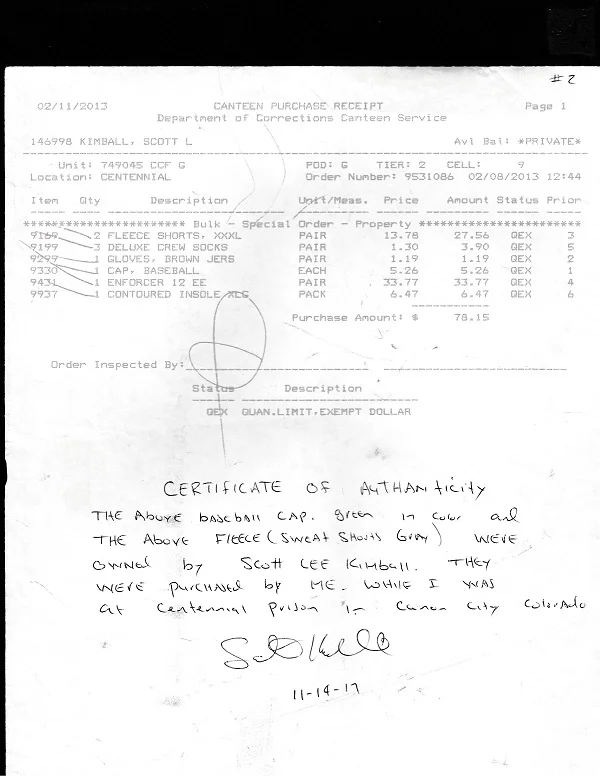 # 2
02/11/2013 CANTEEN PURCHASE RECEIPT Page 1
Department of Corrections Canteen Service
146998 KIMBALL, SCOTT L Avl Bal: *PRIVATE*
Unit: 749045 CCF G POD: G TIER: 2 CELL: 9
Location: CENTENNIAL Order Number: 9531086 02/08/2013 12:44
Item Qty Description Unit/Meas. Price Amount Status Prior
*********************** Bulk - Special Order - Property ***********************
9169 2 FLEECE SHORTS, XXXL PAIR 13.78 27.56 QEX 3
9199 3 DELUXE CREW SOCKS PAIR 1.30 3.90 QEX 5
9299 1 GLOVES, BROWN JERS PAIR 1.19 1.19 QEX 2
9330 1 CAP, BASEBALL EACH 5.26 5.26 QEX 1
9431 1 ENFORCER 12 EE PAIR 33.77 33.77 QEX 4
9937 1 CONTOURED INSOLE XLG PACK 6.47 6.47 QEX 6
Purchase Amount: $ 78.15
Order Inspected By:
Status Description
QEX QUAN.LIMIT,EXEMPT DOLLAR
CERTIFICATE OF AUTHANticity
THE Above baseball CAP. green in color and
THE Above FLEECE (SWEAT Shorts Gray) WERE
OWNED by Scott LEE Kimball. THEY
WERE purchased by ME. WHILE I WAS
at Centennial Prison in Canon City Colorado
11-14-17